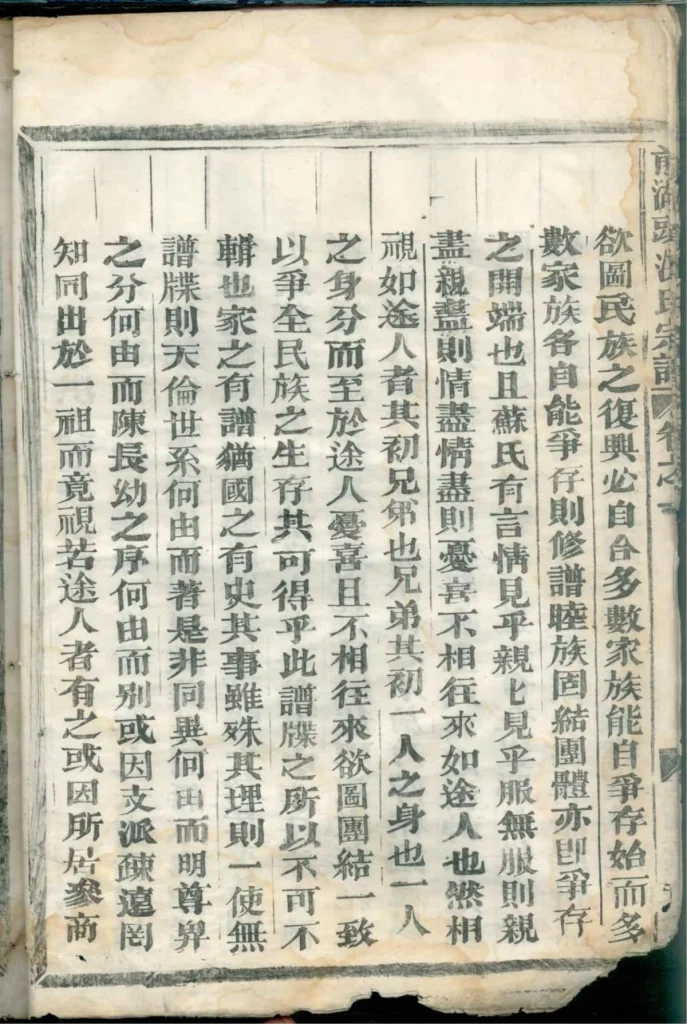 湖頭沈氏宗譜 卷之一
欲圖民族之復興必自合多數家族能自爭存始而多
數家族各自能爭存則修譜睦族固結團體亦即爭存
之開端也且蘇氏有言情見乎親匕見乎服無服則親
盡親盡則情盡情盡則憂喜不相往來如途人也然相
視如途人者其初兄弟也兄弟其初一人之身也一人
之身分而至於途人憂喜且不相往來欲圖團結一致
以爭全民族之生存其可得乎此譜牒之所以不可不
輯也家之有譜猶國之有史其事雖殊其理則一使無
譜牒則天倫世系何由而著是非同異何由而明尊卑
之分何由而陳長幼之序何由而别或因支派疎遠罔
知同出於一祖而竟視若途人者有之或因所居參商